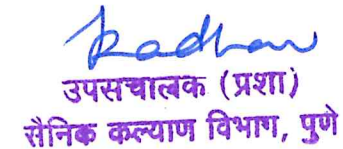 उपसचालक (प्रशा)
सैनिक कल्याण विभाग, पुणे